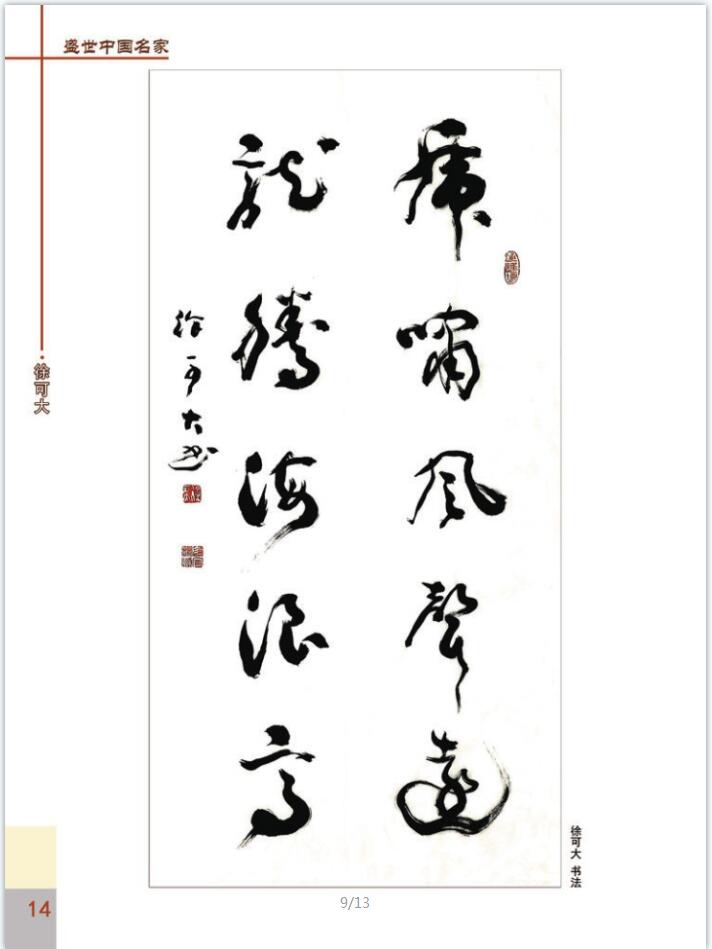 盛世中国名家
·徐可大
虎啸风聲遠
龍騰海浪高
徐可大书
徐可大 书法
14
9/13